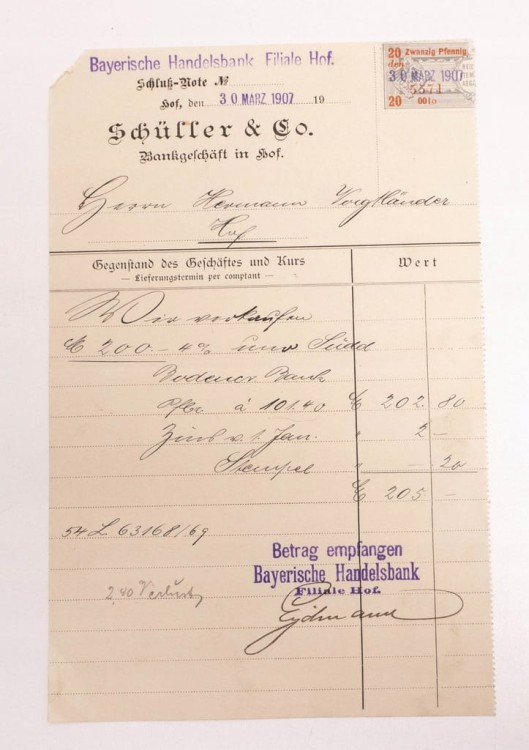 Bayerische Handelsbank Filiale Hof.
Schluß-Note №
Hof, den 30 MARZ 1907 19
20 Zwanzig Pfennig
den
30 MARZ 1907
5571
20 0010
Schüller & Co.
Bankgeschäft in Hof.
Herrn Hermann Voigtländer
Hof
Gegenstand des Geschäftes und Kurs Wert
— Lieferungstermin per comptant —
Wir verkaufen
M 200.- 4% Südd
Bodencr. Bank
Pfbr à 101.40 M 202 80
Zins v. 1. Jan. " 2 —
Stempel " — 20
M 205 —
54 L 63168/69
Betrag empfangen
Bayerische Handelsbank
Filiale Hof.
2,40 Verlust